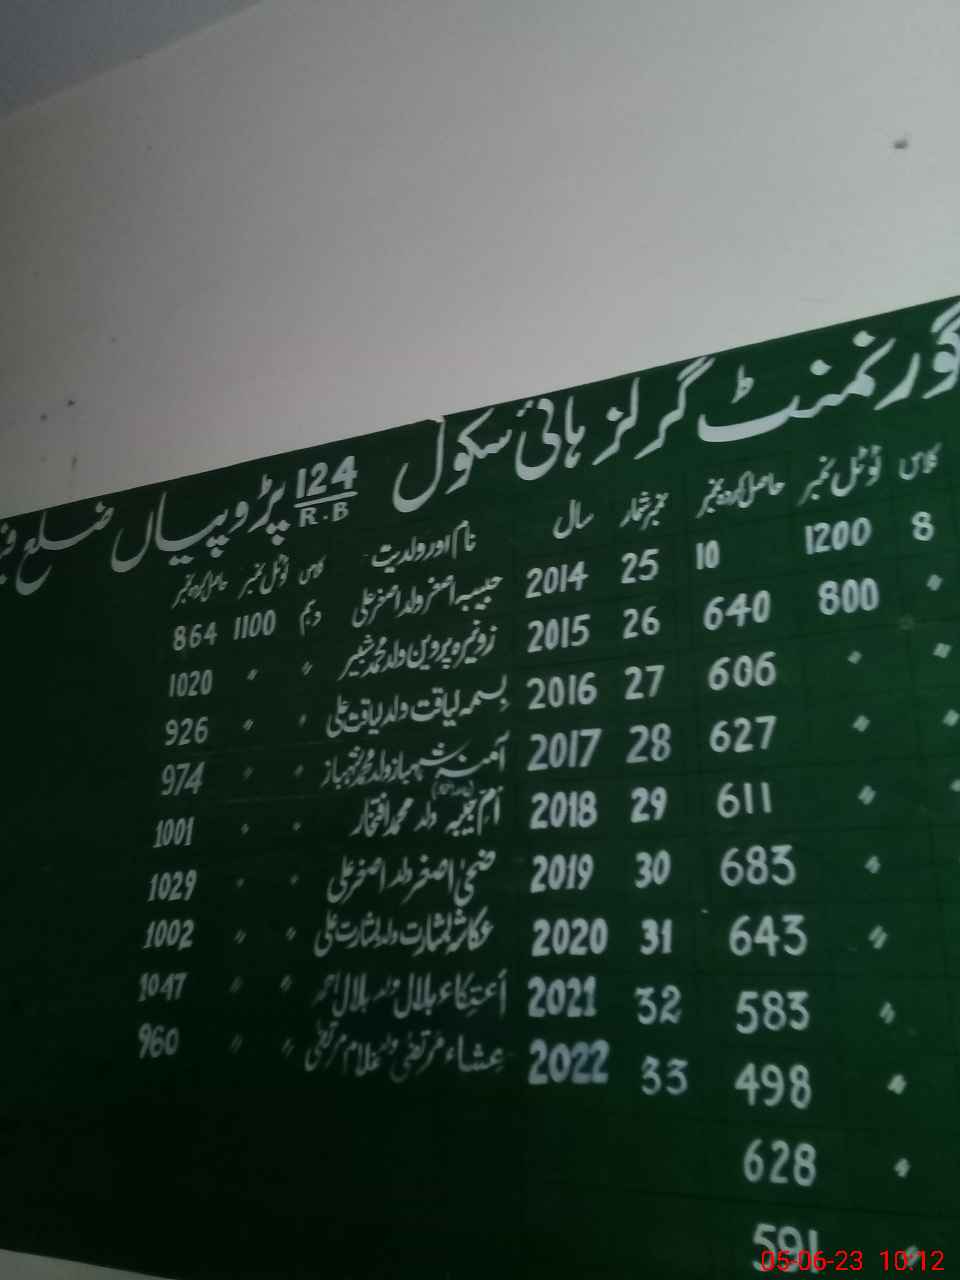 گورنمنٹ گرلز ہائی سکول 124 R.B پڑوپیاں ضلع
کلاس ٹوٹل نمبر حاصل کردہ نمبر نمبر شمار سال نام اور ولدیت کلاس ٹوٹل نمبر حاصل کردہ نمبر
8 1200 10 25 2014 حبیبہ اصغر ولد اصغر علی دہم 1100 864
〃 800 640 26 2015 زونیرہ پروین ولد محمد شبیر 〃 〃 1020
〃 〃 606 27 2016 بسمہ لیاقت ولد لیاقت علی 〃 〃 926
〃 〃 627 28 2017 آمنہ شہباز ولد محمد شہباز 〃 〃 974
〃 〃 611 29 2018 اُمِّ حبیبہ ولد محمد افتخار 〃 〃 1001
〃 683 30 2019 ضحیٰ اصغر ولد اصغر علی 〃 〃 1029
〃 643 31 2020 عکاشہ بشارت ولد بشارت علی 〃 〃 1002
〃 583 32 2021 بلال ولد بلال احمد 〃 〃 1047
〃 498 33 2022 عشاء مرتضیٰ ولد غلام مرتضیٰ 〃 〃 960
〃 628
〃 591
05-06-23 10:12